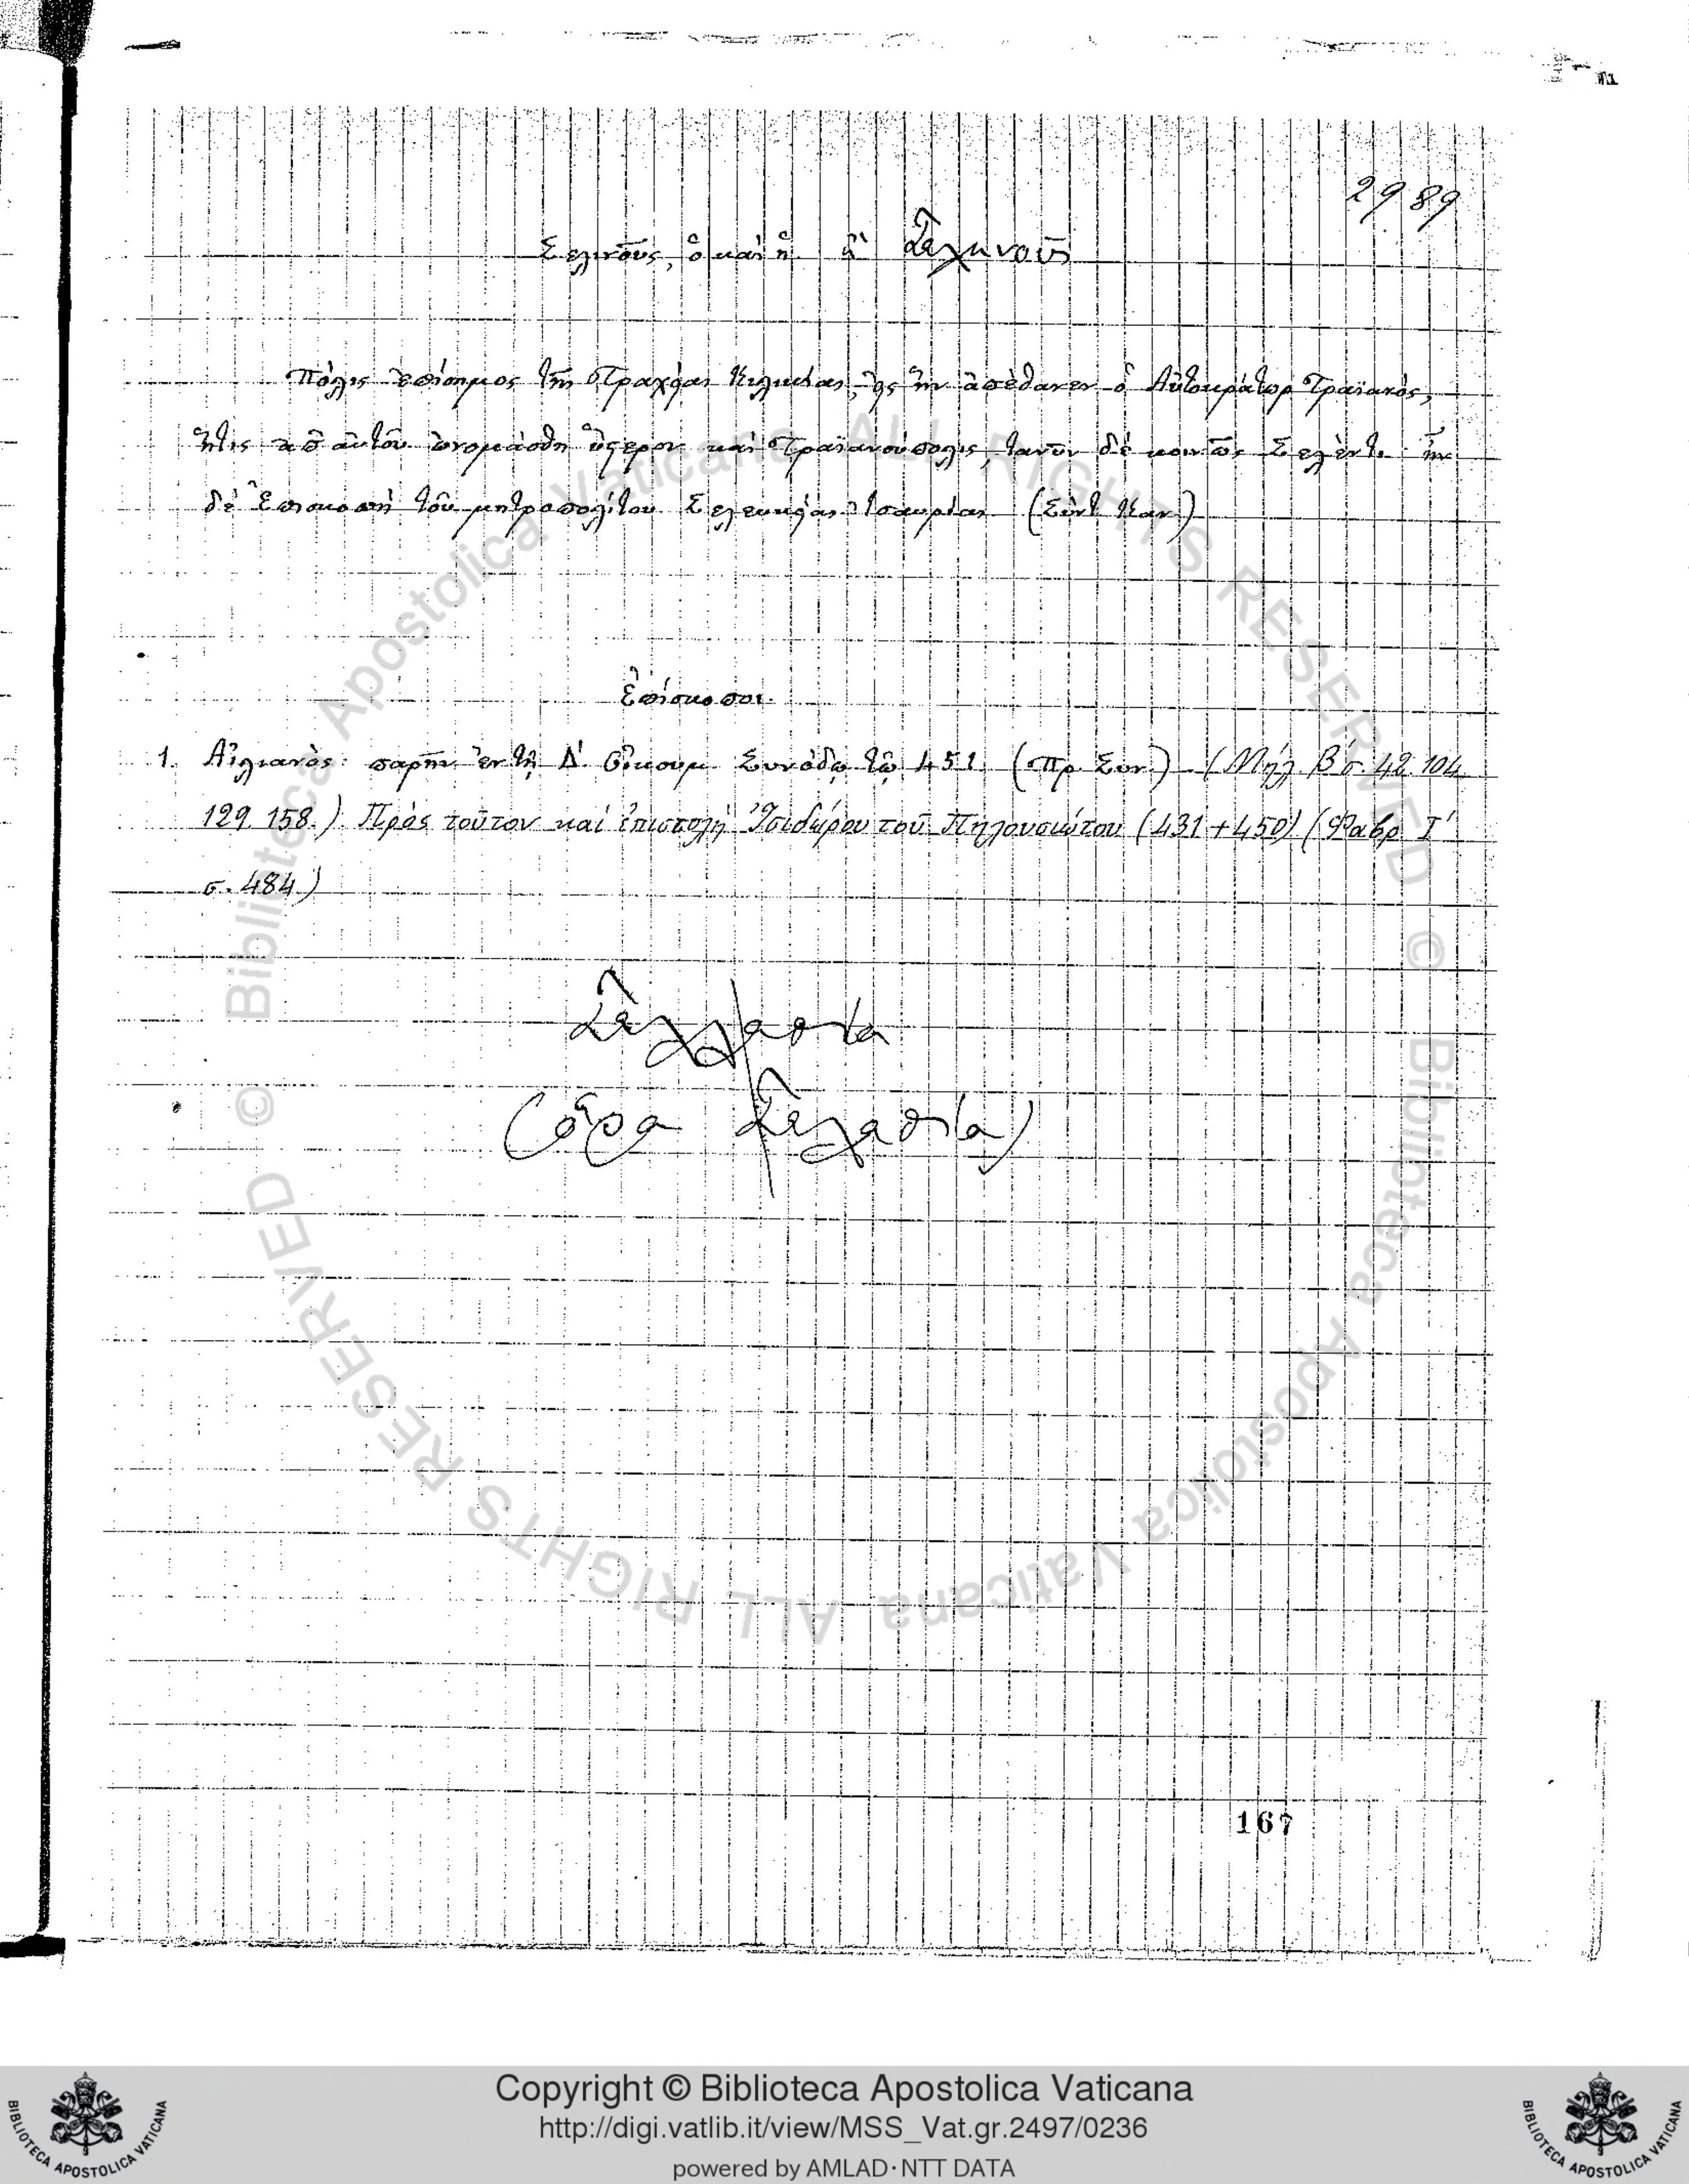 2989
Σελινοῦς, ὁ καὶ ἡ ἢ Σεληνοῦς
Πόλις ἐπίσημος τῆς Τραχείας Κιλικίας, εἰς ἣν ἀπέθανεν ὁ Αὐτοκράτωρ Τραϊανὸς,
ἥτις ἀπ' αὐτοῦ ὠνομάσθη ὕστερον καὶ Τραϊανούπολις, τανῦν δὲ κοινῶς Σελέντι. ἦν
δὲ Ἐπισκοπὴ τοῦ μητροπολίτου Σελευκείας Ἰσαυρίας (Σύντ. Καν.)
Ἐπίσκοποι.
1. Αἰλιανὸς: παρῆν ἐν τῇ Δ΄. Οἰκουμ. Συνόδῳ τῷ 451. (Πρ. Συν.) (Μήλ. Β΄ σ. 42. 104
129. 158.) Πρὸς τοῦτον καὶ ἐπιστολὴ Ἰσιδώρου τοῦ Πηλουσιώτου (431 + 450) (Φαβρ. Ι΄
σ. 484.)
Σελλασία
(ὅρα Σελασία)
167
Copyright © Biblioteca Apostolica Vaticana
http://digi.vatlib.it/view/MSS_Vat.gr.2497/0236
powered by AMLAD·NTT DATA
BIBLIOTECA APOSTOLICA VATICANA
BIBLIOTECA APOSTOLICA VATICANA
© Biblioteca Apostolica Vaticana ALL RIGHTS RESERVED
© Biblioteca Apostolica Vaticana ALL RIGHTS RESERVED